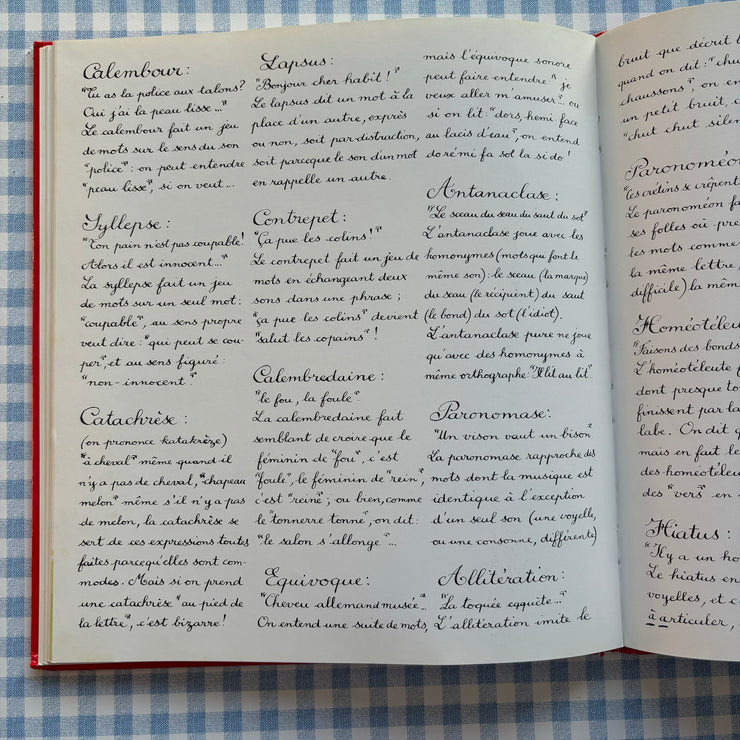 Calembour :
"Tu as la police aux talons?
Oui j'ai la peau lisse..."
Le calembour fait un jeu
de mots sur le sens du son
"police" : on peut entendre
"peau lisse", si on veut...
Syllepse :
"Ton pain n'est pas coupable!
Alors il est innocent..."
La syllepse fait un jeu
de mots sur un seul mot :
"coupable", au sens propre
veut dire : "qui peut se cou-
per", et au sens figuré :
"non-innocent."
Catachrèse :
(on prononce katakrèze)
"à cheval" même quand il
n'y a pas de cheval, "chapeau
melon" même s'il n'y a pas
de melon, la catachrèse se
sert de ces expressions toutes
faites parcequ'elles sont com-
modes. Mais si on prend
une catachrèse "au pied de
la lettre", c'est bizarre!
Lapsus :
"Bonjour cher habit!"
Le lapsus dit un mot à la
place d'un autre, exprès
ou non, soit par distraction,
soit parceque le son d'un mot
en rappelle un autre.
Contrepet :
"Ça pue les colins!"
Le contrepet fait un jeu de
mots en échangeant deux
sons dans une phrase ;
"ça pue les colins" devient
"salut les copains"!
Calembredaine :
"le fou, la foule"
La calembredaine fait
semblant de croire que le
féminin de "fou", c'est
"foule", le féminin de "rein",
c'est "reine" ; ou bien, comme
le "tonnerre tonne", on dit :
"le salon s'allonge"...
Équivoque :
"Cheveu allemand musée..."
On entend une suite de mots,
mais l'équivoque sonore
peut faire entendre "je
veux aller m'amuser", ou
si on lit : "dors, hémi face
au lacis d'eau", on entend
do ré mi fa sol la si do!
Antanaclase :
"Le sceau du seau du saut du sot"
L'antanaclase joue avec les
homonymes (mots qui font le
même son) : le sceau (la marque)
du seau (le récipient) du saut
(le bond) du sot (l'idiot).
L'antanaclase pure ne joue
qu'avec des homonymes à
même orthographe : "Il lit au lit"
Paronomase :
"Un vison vaut un bison"
La paronomase rapproche des
mots dont la musique est
identique à l'exception
d'un seul son (une voyelle,
ou une consonne, différente)
Allitération :
"La toquée caquète..."
L'allitération imite le
bruit que décrit
quand on dit : "chu
chaussons", on en
un petit bruit, c
"chut chut silen
Paronoméo
"Les crétins se crêpent
Le paronoméon fa
ses folles où pre
les mots comme
la même lettre,
difficile) la mêm
Homéotéleu
"Faisons des bonds
L'homéotéleute f
dont presque to
finissent par la
labe. On dit q
mais en fait le
des homéotéleu
des "vers" en
Hiatus :
"Il y a un ho
Le hiatus en
voyelles, et c
à articuler,